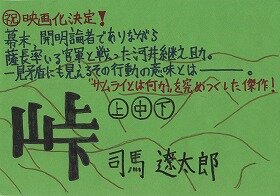 ㊗映画化決定!
幕末、開明論者でありながら
薩長率いる官軍と戦った河井継之助。
一見矛盾にも見えるその行動の意味とは――。
"サムライとは何か"を究めつくした傑作!
上 中 下
峠
司馬遼太郎